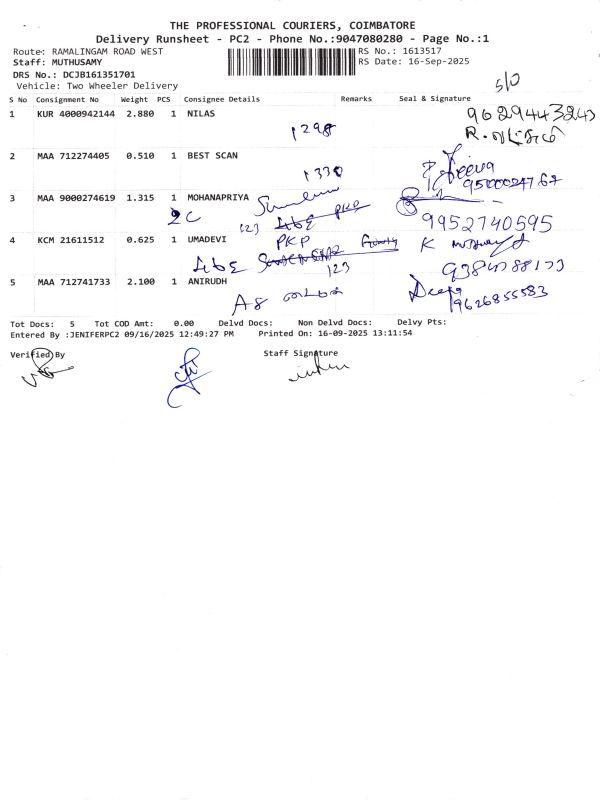 THE PROFESSIONAL COURIERS, COIMBATORE
Delivery Runsheet - PC2 - Phone No.:9047080280 - Page No.:1
Route: RAMALINGAM ROAD WEST
RS No.: 1613517
Staff: MUTHUSAMY
RS Date: 16-Sep-2025
DRS No.: DCJB161351701
Vehicle: Two Wheeler Delivery
5/0
S No Consignment No Weight PCS Consignee Details Remarks Seal & Signature
1 KUR 4000942144 2.880 1 NILAS
9629443243
1298
R.
2 MAA 712274405 0.510 1 BEST SCAN
1330
Jeeva
9500024767
3 MAA 9000274619 1.315 1 MOHANAPRIYA
2C
123
PKP
9952740595
4 KCM 21611512 0.625 1 UMADEVI
PKP
K
123
5 MAA 712741733 2.100 1 ANIRUDH
A8
Deepa
9626855583
Tot Docs: 5 Tot COD Amt: 0.00 Delvd Docs: Non Delvd Docs: Delvy Pts:
Entered By :JENIFERPC2 09/16/2025 12:49:27 PM Printed On: 16-09-2025 13:11:54
Verified By
Staff Signature